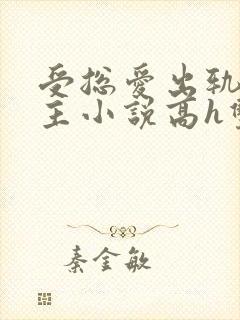 受总爱出轨
主小说高h
秦金敏